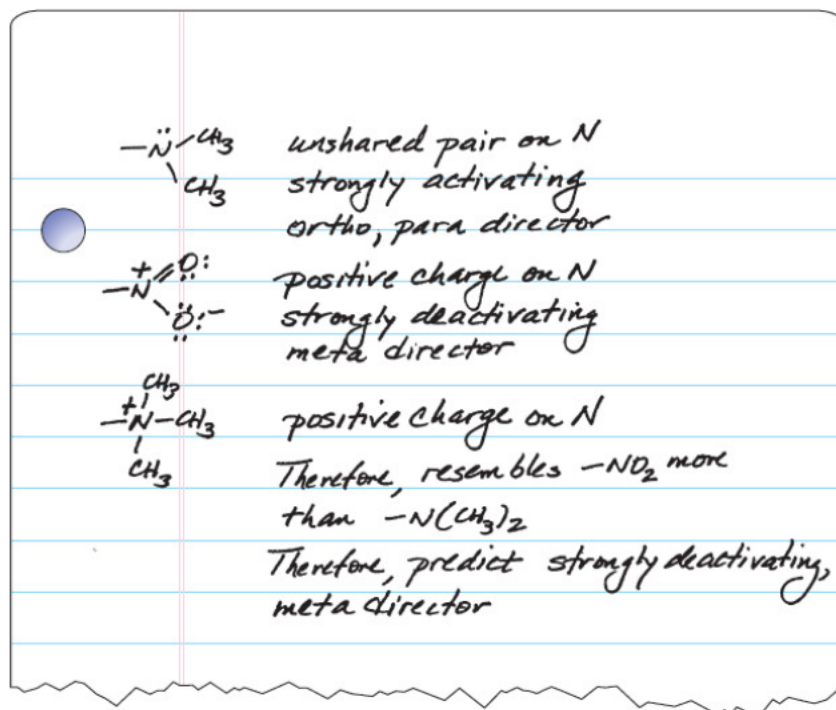 –N̈–CH3 unshared pair on N
CH3 strongly activating
ortho, para director
+ O: positive charge on N
–N O:– strongly deactivating
meta director
CH3
+
–N–CH3 positive charge on N
CH3 Therefore, resembles –NO2 more
than –N(CH3)2
Therefore, predict strongly deactivating,
meta director